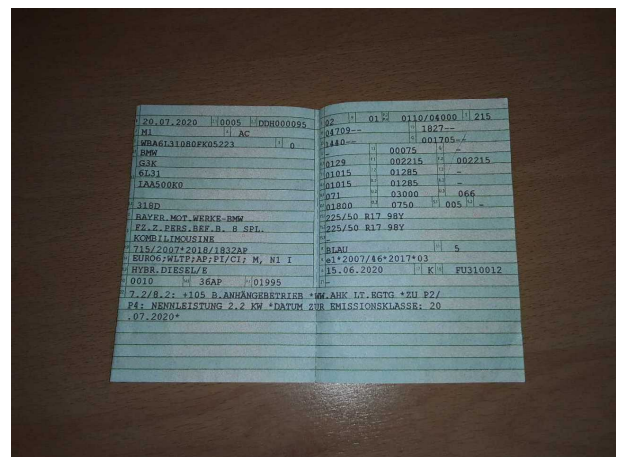 20.07.2020 0005 DDH000095
M1 AC
WBA6L31080FK05223 0
BMW
G3K
6L31
IAA500K0
-
318D
BAYER.MOT.WERKE-BMW
FZ.Z.PERS.BEF.B. 8 SPL.
KOMBILIMOUSINE
715/2007*2018/1832AP
EURO6;WLTP;AP;PI/CI; M, N1 I
HYBR.DIESEL/E
0010 36AP 01995
02 01 0110/04000 215
04709-- 1827--
1440-- 001705--
- 00075 -
0129 002215 002215
01015 01285 -
01015 01285 -
071 03000 066
01800 0750 005 -
225/50 R17 98Y
225/50 R17 98Y
-
BLAU 5
e1*2007/46*2017*03
15.06.2020 K FU310012
-
7.2/8.2: +105 B.ANHÄNGEBETRIEB *WW.AHK LT.EGTG *ZU P2/
P4: NENNLEISTUNG 2.2 KW *DATUM ZUR EMISSIONSKLASSE: 20
.07.2020*